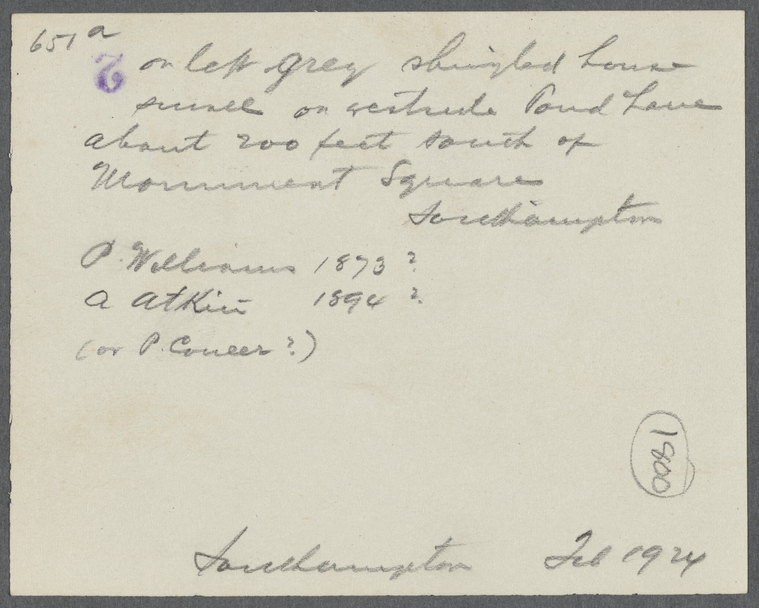 651 a
2 on left grey shingled house
small on westside Pond Lane
about 200 feet south of
Monument Square
Southampton
P. Williams 1873 ?
A Atkin 1894 ?
(or P. Coueer ?)
1800
Southampton Feb 1924